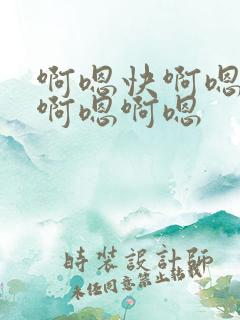 啊嗯快啊嗯
啊嗯啊嗯
時裝設計師
未经同意禁止转载